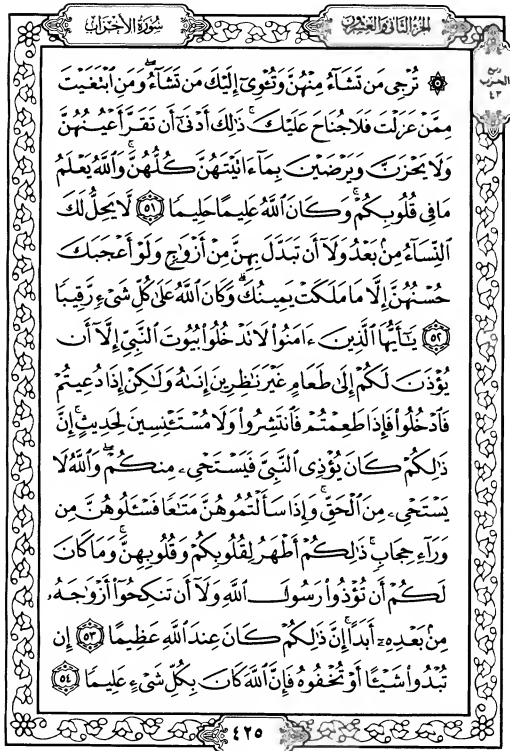 سُورَةُ الأَحْزَابِ
الجُزءُ الثَّانِي وَالعِشْرُونَ
ربع
الحزب
٤٣
۞ تُرْجِى مَن تَشَآءُ مِنْهُنَّ وَتُـْٔوِىٓ إِلَيْكَ مَن تَشَآءُ ۖ وَمَنِ ٱبْتَغَيْتَ
مِمَّنْ عَزَلْتَ فَلَا جُنَاحَ عَلَيْكَ ۚ ذَٰلِكَ أَدْنَىٰٓ أَن تَقَرَّ أَعْيُنُهُنَّ
وَلَا يَحْزَنَّ وَيَرْضَيْنَ بِمَآ ءَاتَيْتَهُنَّ كُلُّهُنَّ ۚ وَٱللَّهُ يَعْلَمُ
مَا فِى قُلُوبِكُمْ ۚ وَكَانَ ٱللَّهُ عَلِيمًا حَلِيمًا ۝٥١ لَّا يَحِلُّ لَكَ
ٱلنِّسَآءُ مِنۢ بَعْدُ وَلَآ أَن تَبَدَّلَ بِهِنَّ مِنْ أَزْوَٰجٍ وَلَوْ أَعْجَبَكَ
حُسْنُهُنَّ إِلَّا مَا مَلَكَتْ يَمِينُكَ ۗ وَكَانَ ٱللَّهُ عَلَىٰ كُلِّ شَىْءٍ رَّقِيبًا
۝٥٢ يَٰٓأَيُّهَا ٱلَّذِينَ ءَامَنُوا۟ لَا تَدْخُلُوا۟ بُيُوتَ ٱلنَّبِىِّ إِلَّآ أَن
يُؤْذَنَ لَكُمْ إِلَىٰ طَعَامٍ غَيْرَ نَٰظِرِينَ إِنَىٰهُ وَلَٰكِنْ إِذَا دُعِيتُمْ
فَٱدْخُلُوا۟ فَإِذَا طَعِمْتُمْ فَٱنتَشِرُوا۟ وَلَا مُسْتَـْٔنِسِينَ لِحَدِيثٍ ۚ إِنَّ
ذَٰلِكُمْ كَانَ يُؤْذِى ٱلنَّبِىَّ فَيَسْتَحْىِۦ مِنكُمْ ۖ وَٱللَّهُ لَا
يَسْتَحْىِۦ مِنَ ٱلْحَقِّ ۚ وَإِذَا سَأَلْتُمُوهُنَّ مَتَٰعًا فَسْـَٔلُوهُنَّ مِن
وَرَآءِ حِجَابٍ ۚ ذَٰلِكُمْ أَطْهَرُ لِقُلُوبِكُمْ وَقُلُوبِهِنَّ ۚ وَمَا كَانَ
لَكُمْ أَن تُؤْذُوا۟ رَسُولَ ٱللَّهِ وَلَآ أَن تَنكِحُوٓا۟ أَزْوَٰجَهُۥ
مِنۢ بَعْدِهِۦٓ أَبَدًا ۚ إِنَّ ذَٰلِكُمْ كَانَ عِندَ ٱللَّهِ عَظِيمًا ۝٥٣ إِن
تُبْدُوا۟ شَيْـًٔا أَوْ تُخْفُوهُ فَإِنَّ ٱللَّهَ كَانَ بِكُلِّ شَىْءٍ عَلِيمًا ۝٥٤
٤٢٥